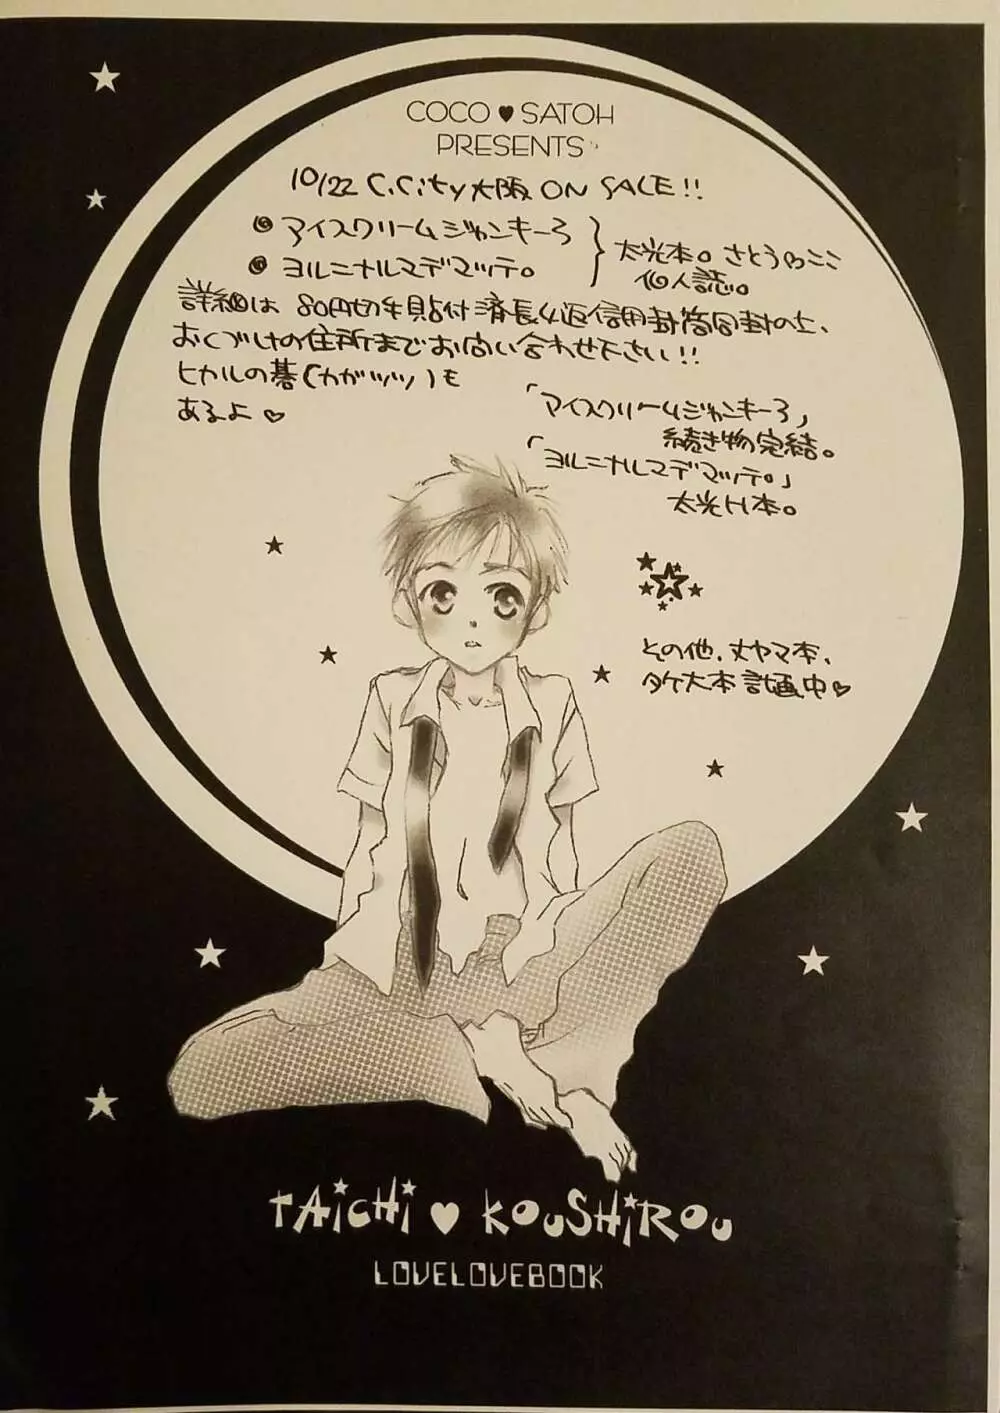 COCO ♥ SATOH
PRESENTS
10/22 C.City大阪 ON SALE!!
アイスクリームジャンキーろ
ヨルニナルマデマッテ。
太光本。さとう ここ
個人誌。
詳細は 80円切手貼付済長4返信用封筒同封の上、
おくづけの住所までお問い合わせ下さい!!
ヒカルの碁(カガツツ)も
あるよ♡
「アイスクリームジャンキーろ」
続き物完結。
「ヨルニナルマデマッテ。」
太光H本。
その他、丈ヤマ本、
タケ大本計画中♡
TAiCHi ♥ KOUSHiROU
LOVELOVEBOOK